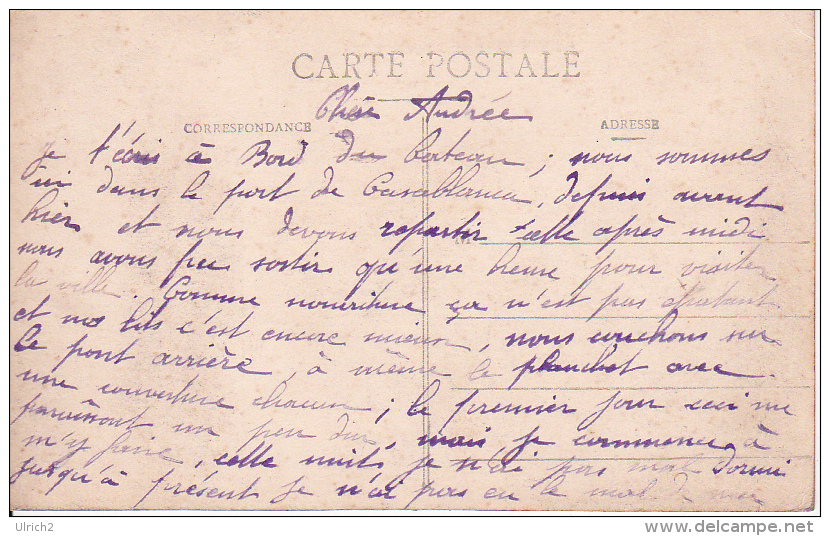 CARTE POSTALE
Chère Andrée
CORRESPONDANCE
ADRESSE
Je t'écris à Bord du bateau ; nous sommes
ici dans le port de Casablanca, depuis avant
hier et nous devons repartir cette après midi
nous avons peu sortir qu'une heure pour visiter
la ville. Comme nourriture ça n'est pas épatant
et nos lits c'est encore mieux, nous couchons sur
le pont arrière, à même le planchet avec
une couverture chacun ; le premier jour ceci me
paraissait un peu dur, mais je commence à
m'y faire, cette nuit, je n'ai pas mal dormi
jusqu'à présent je n'ai pas eu le mal de mer
Ulrich2
www.delcampe.net